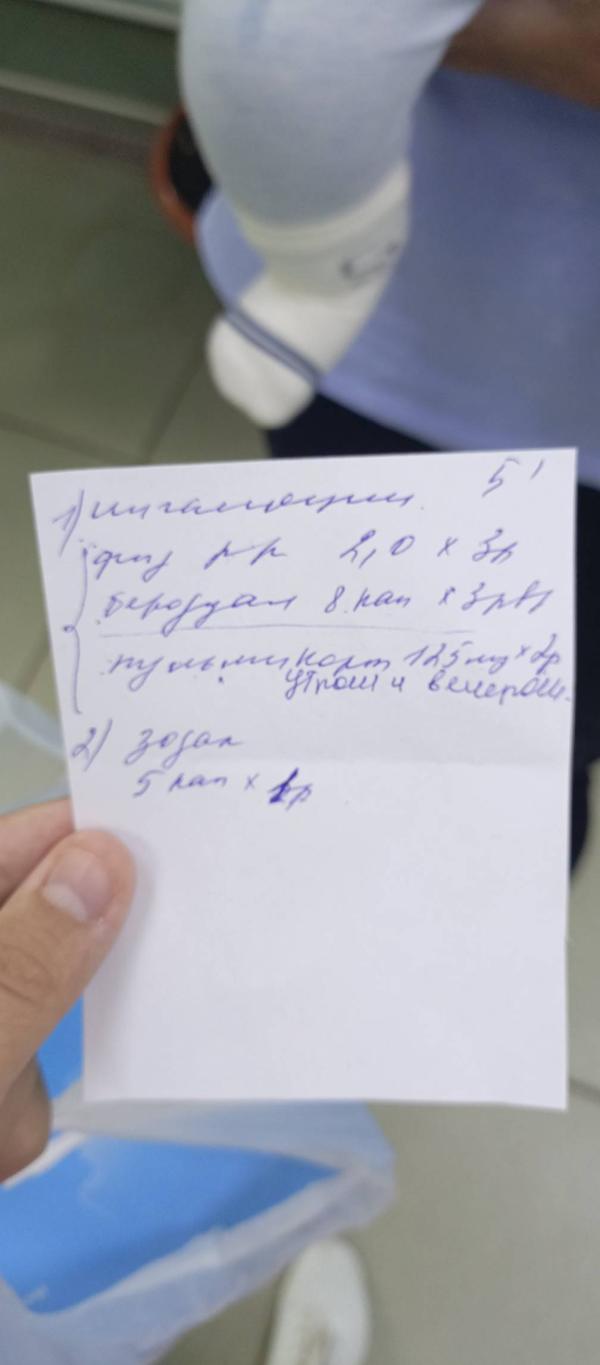 1) ингаляции 5'
физ р-р 2,0 х 3р
беродуал 8 кап х 3р
пульмикорт 125 мг х 2р
утром и вечером.
2) зодак
5 кап х 1р